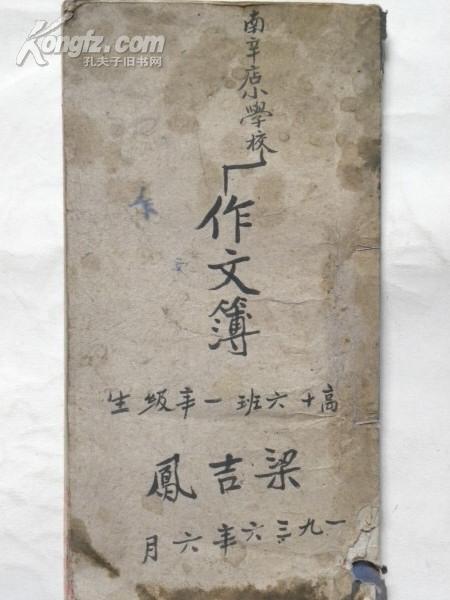 Kongfz.com
孔夫子旧书网
南辛店小學校
「作文簿
高十六班一年級生
梁吉鳳
一九三六年六月